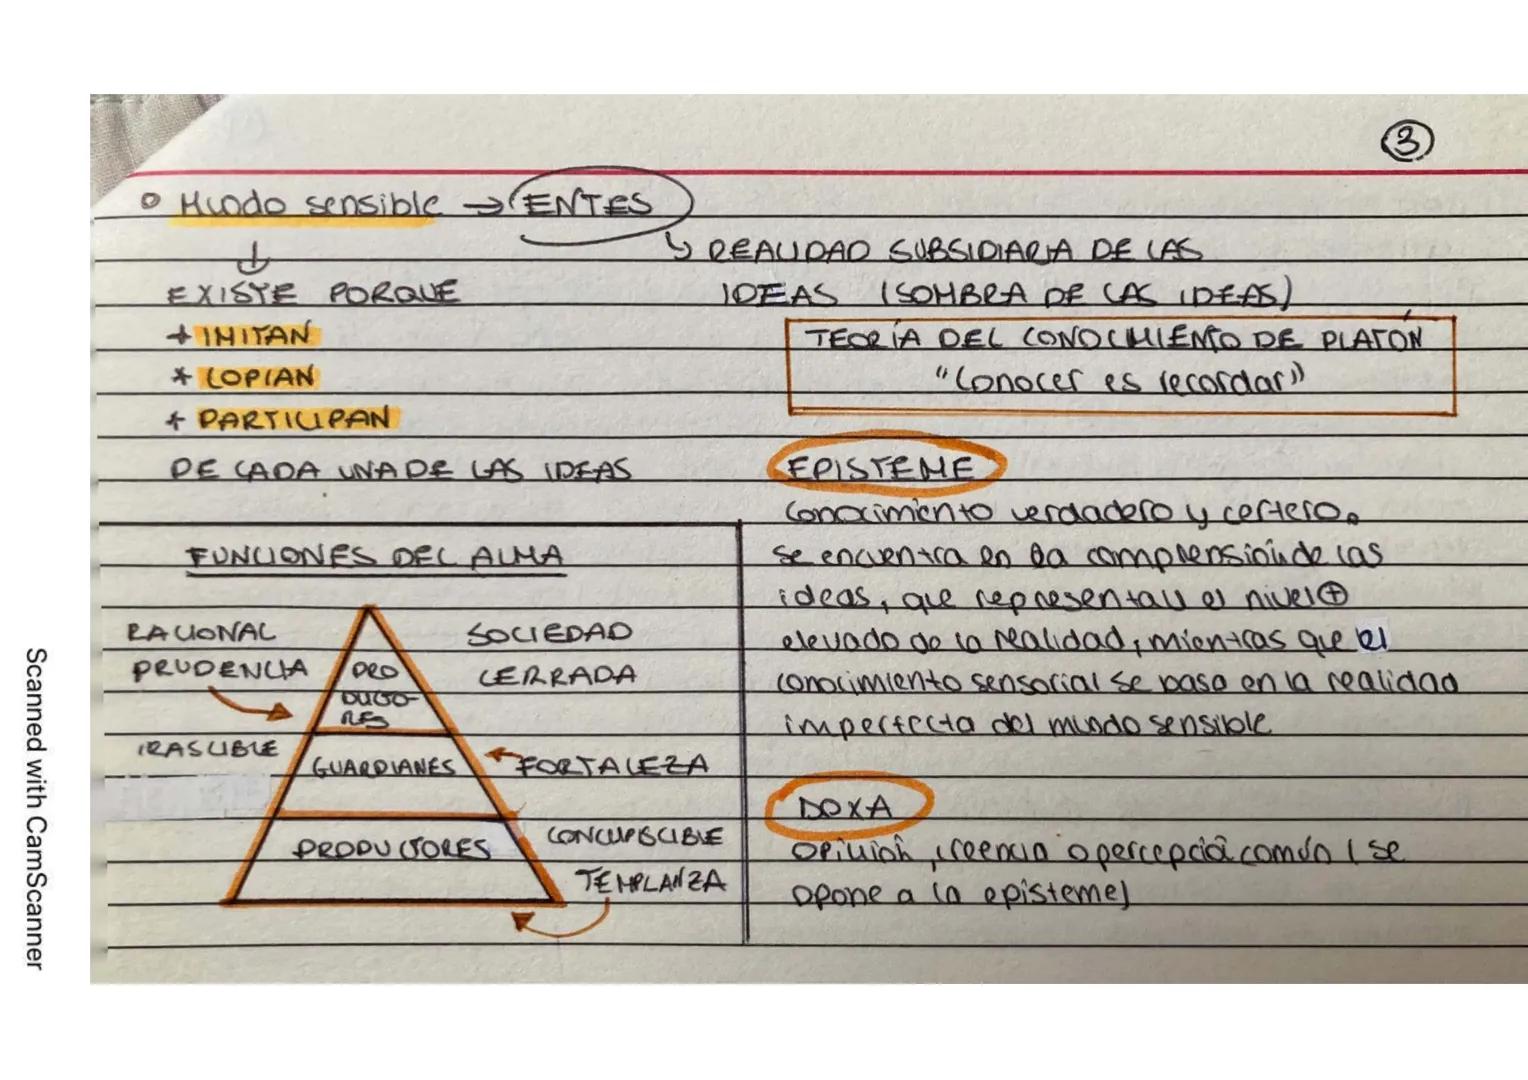 3
Mundo sensible → ENTES
↳ REALIDAD SUBSIDIARIA DE LAS
IDEAS (SOMBRA DE LAS IDEAS)
↓
EXISTE PORQUE
+ IMITAN
* COPIAN
+ PARTICIPAN
DE CADA UNA DE LAS IDEAS
TEORÍA DEL CONOCIMIENTO DE PLATÓN
"Conocer es recordar"
EPISTEME
Conocimiento verdadero y certero.
Se encuentra en la comprensión de las
ideas, que representan el nivel ⊕
elevado de la realidad, mientras que el
conocimiento sensorial se basa en la realidad
imperfecta del mundo sensible
DOXA
Opinión, creencia o percepción común (se
opone a la episteme)
FUNCIONES DEL ALMA
RACIONAL
PRUDENCIA
SOCIEDAD
CERRADA
PRO
DUCTO-
RES
IRASCIBLE
GUARDIANES
FORTALEZA
PRODUCTORES
CONCUPISCIBLE
TEMPLANZA
Scanned with CamScanner